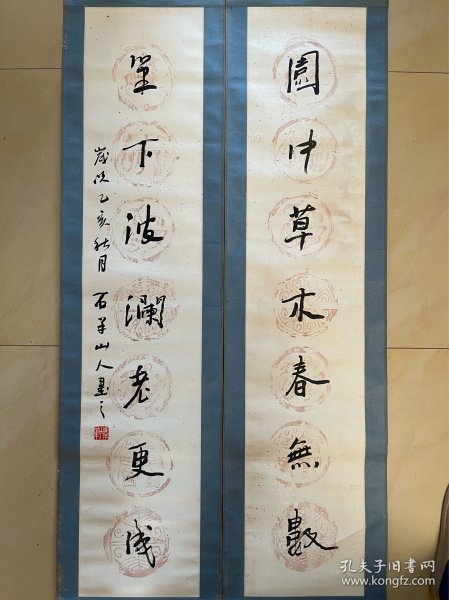 園中草木春無數
筆下波瀾老更成
歲次乙亥秋月 山人
孔夫子旧书网
www.kongfz.com